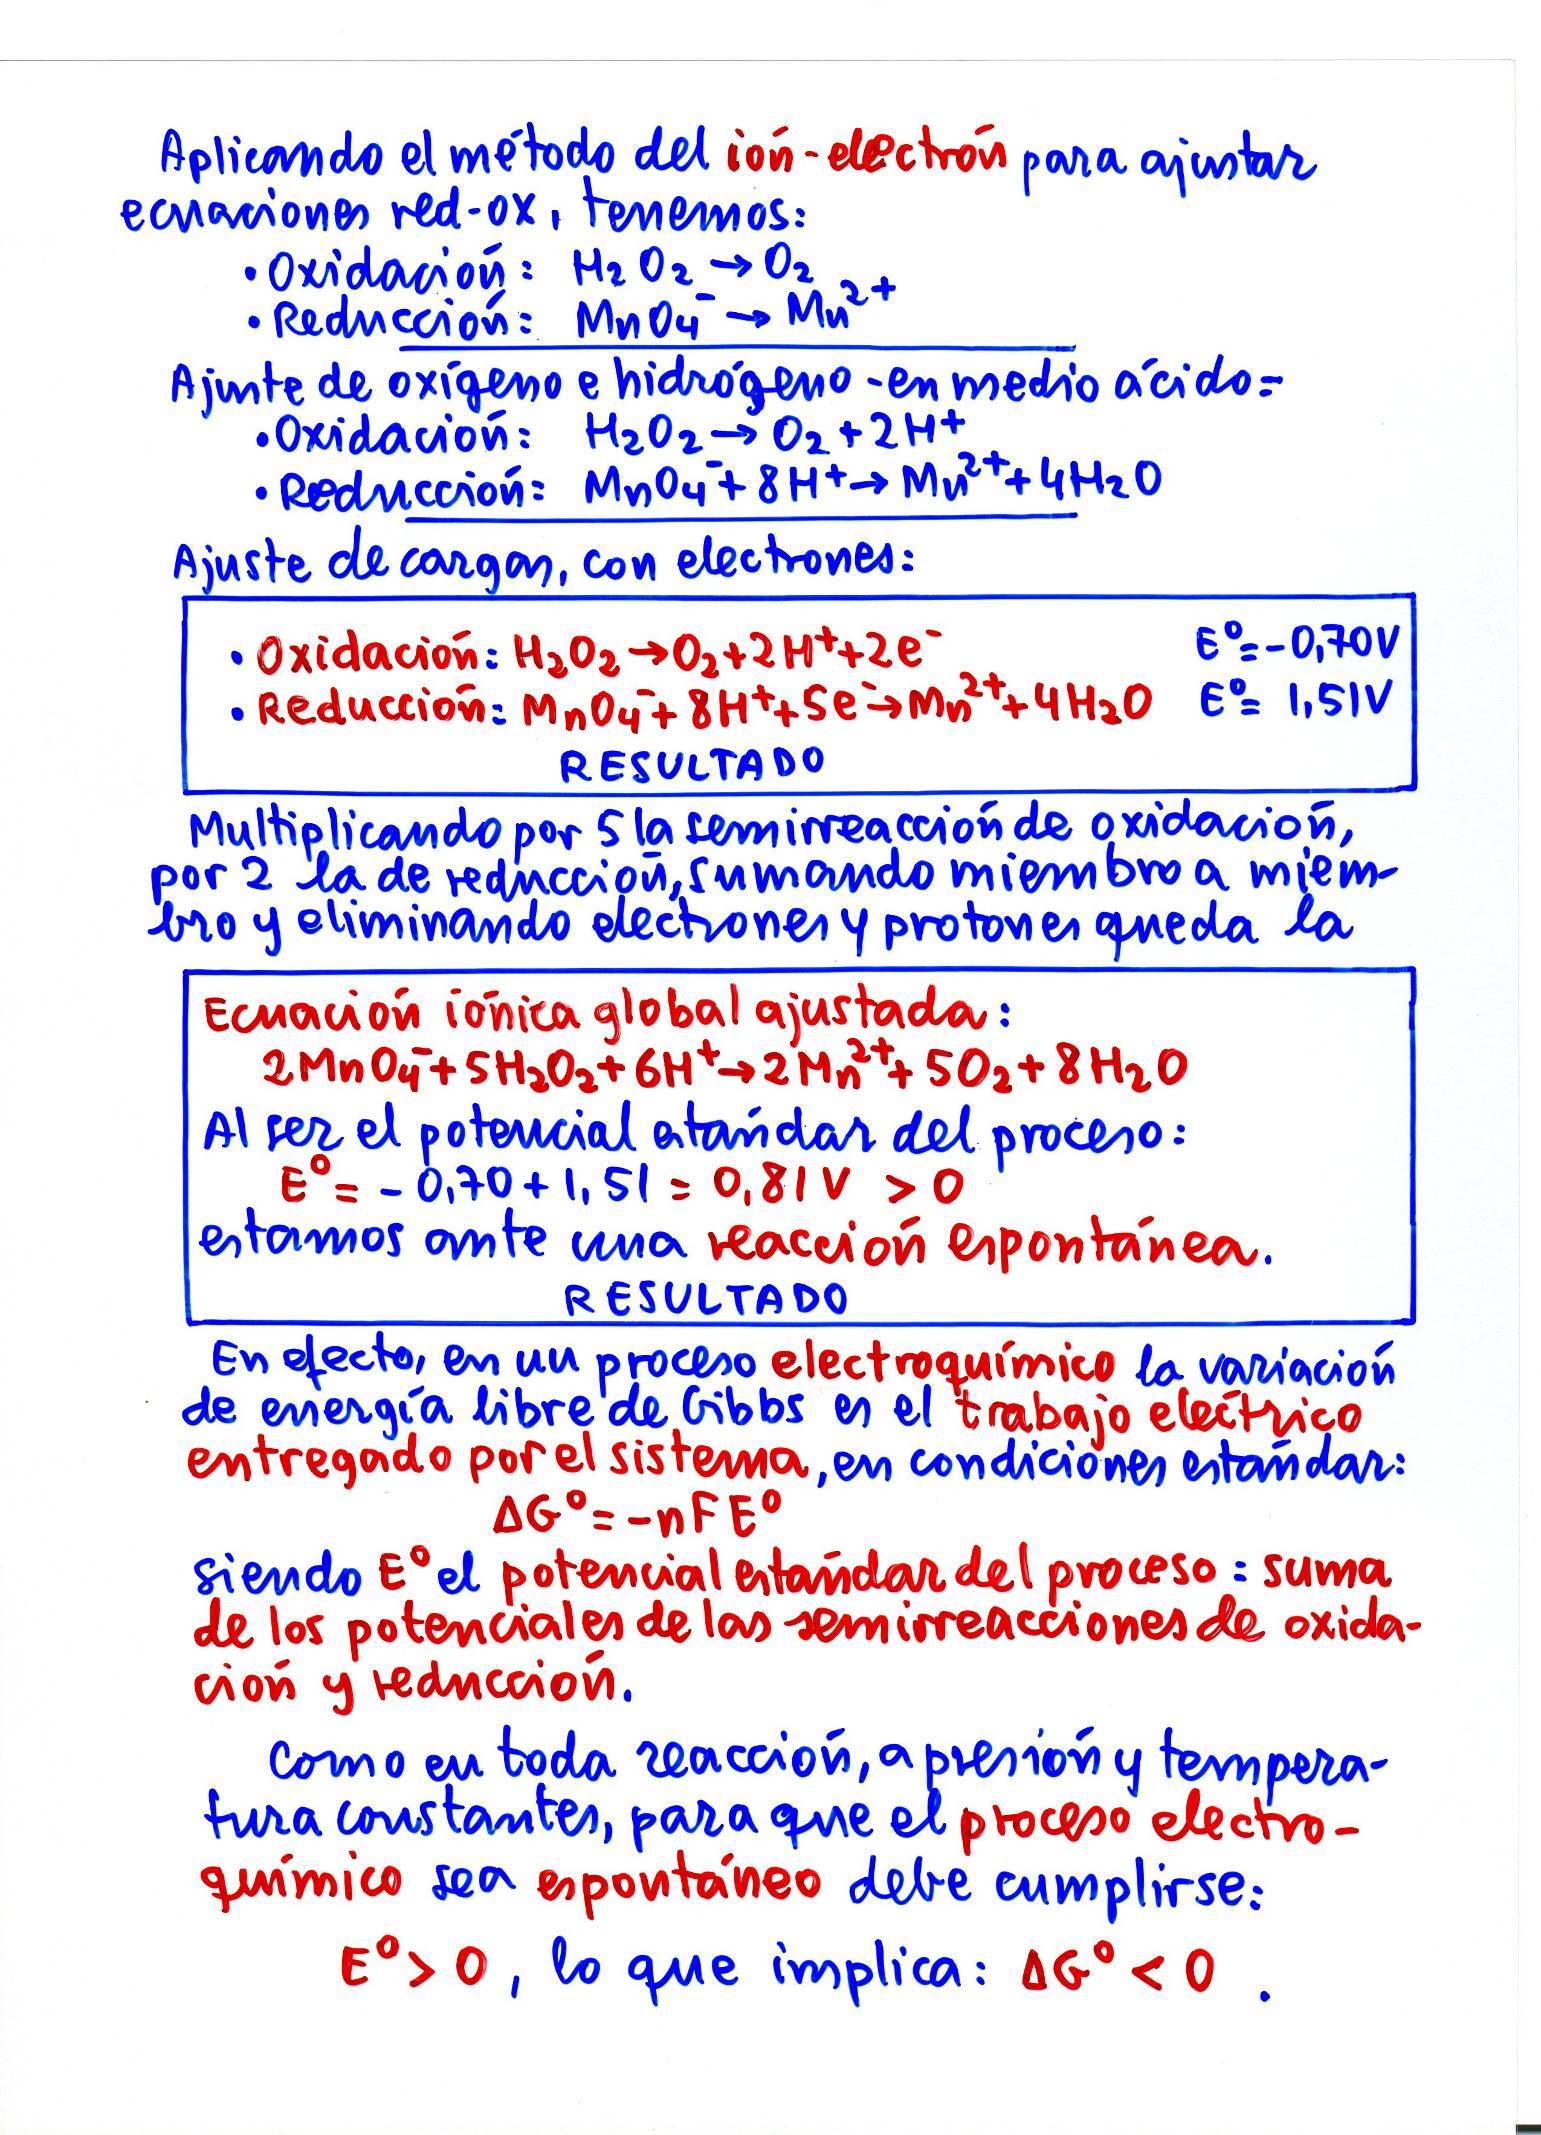 Aplicando el método del ión-electrón para ajustar
ecuaciones red-ox, tenemos:
• Oxidación: H₂O₂ → O₂
• Reducción: MnO₄⁻ → Mn²⁺
Ajuste de oxígeno e hidrógeno -en medio ácido-
• Oxidación: H₂O₂ → O₂ + 2H⁺
• Reducción: MnO₄⁻ + 8H⁺ → Mn²⁺ + 4H₂O
Ajuste de cargas, con electrones:
• Oxidación: H₂O₂ → O₂ + 2H⁺ + 2e⁻ E⁰ = -0,70V
• Reducción: MnO₄⁻ + 8H⁺ + 5e⁻ → Mn²⁺ + 4H₂O E⁰ = 1,51V
RESULTADO
Multiplicando por 5 la semirreacción de oxidación,
por 2 la de reducción, sumando miembro a miem-
bro y eliminando electrones y protones queda la
Ecuación iónica global ajustada:
2MnO₄⁻ + 5H₂O₂ + 6H⁺ → 2Mn²⁺ + 5O₂ + 8H₂O
Al ser el potencial estándar del proceso:
E⁰ = -0,70 + 1,51 = 0,81V > 0
estamos ante una reacción espontánea.
RESULTADO
En efecto, en un proceso electroquímico la variación
de energía libre de Gibbs es el trabajo eléctrico
entregado por el sistema, en condiciones estándar:
ΔG⁰ = -nFE⁰
siendo E⁰ el potencial estándar del proceso: suma
de los potenciales de las semirreacciones de oxida-
ción y reducción.
Como en toda reacción, a presión y tempera-
tura constantes, para que el proceso electro-
químico sea espontáneo debe cumplirse:
E⁰ > 0, lo que implica: ΔG⁰ < 0 .